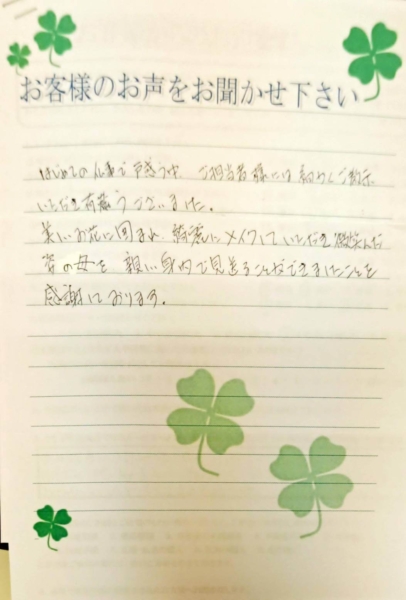 お客様のお声をお聞かせ下さい
はじめての仏事で戸惑う中 ご担当者様には細かくご教示
いただき有難うございました。
美しいお花に囲まれ 綺麗にメイクしていただき 微笑んだ
姿の母を 親しい身内で見送ることができましたことを
感謝しております。